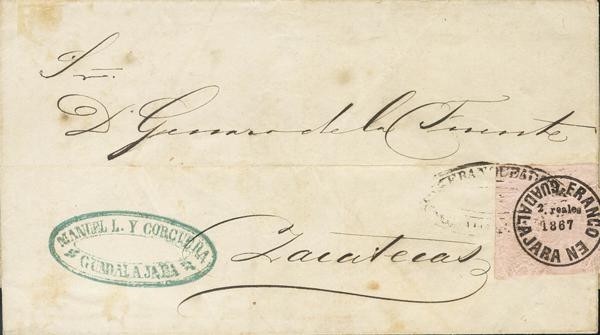 Sr.
D. Genaro de la Fuente
Zacatecas
MANUEL L. Y CORCUERA
GUADALAJARA
FRANQUEADO
FRANCO EN GUADALAJARA
2. reales
1867